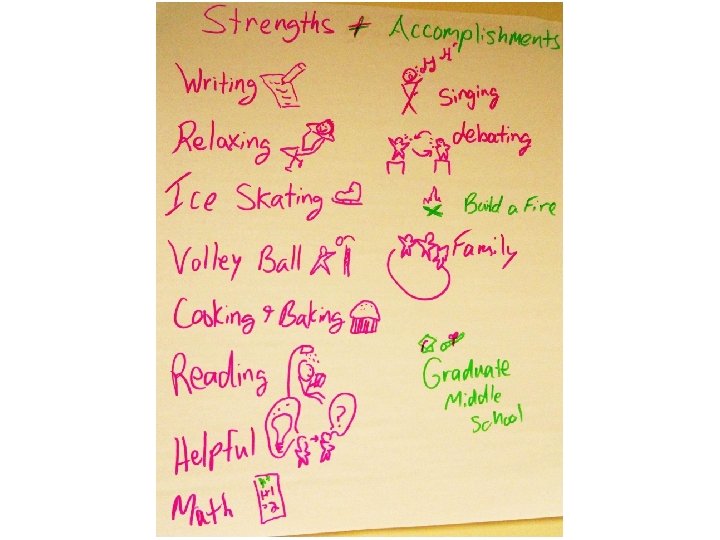 Strengths + Accomplishments
Writing
Relaxing
Ice Skating
Volley Ball
Cooking & Baking
Reading
Helpful
?
Math
1+1
=2
Singing
debating
Build a Fire
Family
Graduate
Middle
School